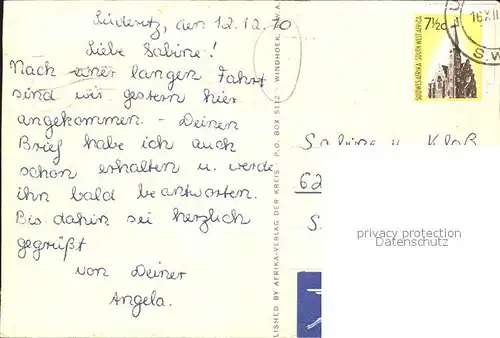 Lüderitz, den 12.12.70
Liebe Sabine!
Nach einer langen Fahrt
sind wir gestern hier
angekommen. - Deinen
Brief habe ich auch
schon erhalten u. werde
ihn bald beantworten.
Bis dahin sei herzlich
gegrüßt
von Deiner
Angela.
LISHED BY AFRIKA-VERLAG DER KREIS · P.O. BOX 5112 · WINDHOEK
7½c
SUIDWES-AFRIKA SOUTH WEST AFRICA
16XII
S.W.
62
S.
privacy protection
Datenschutz